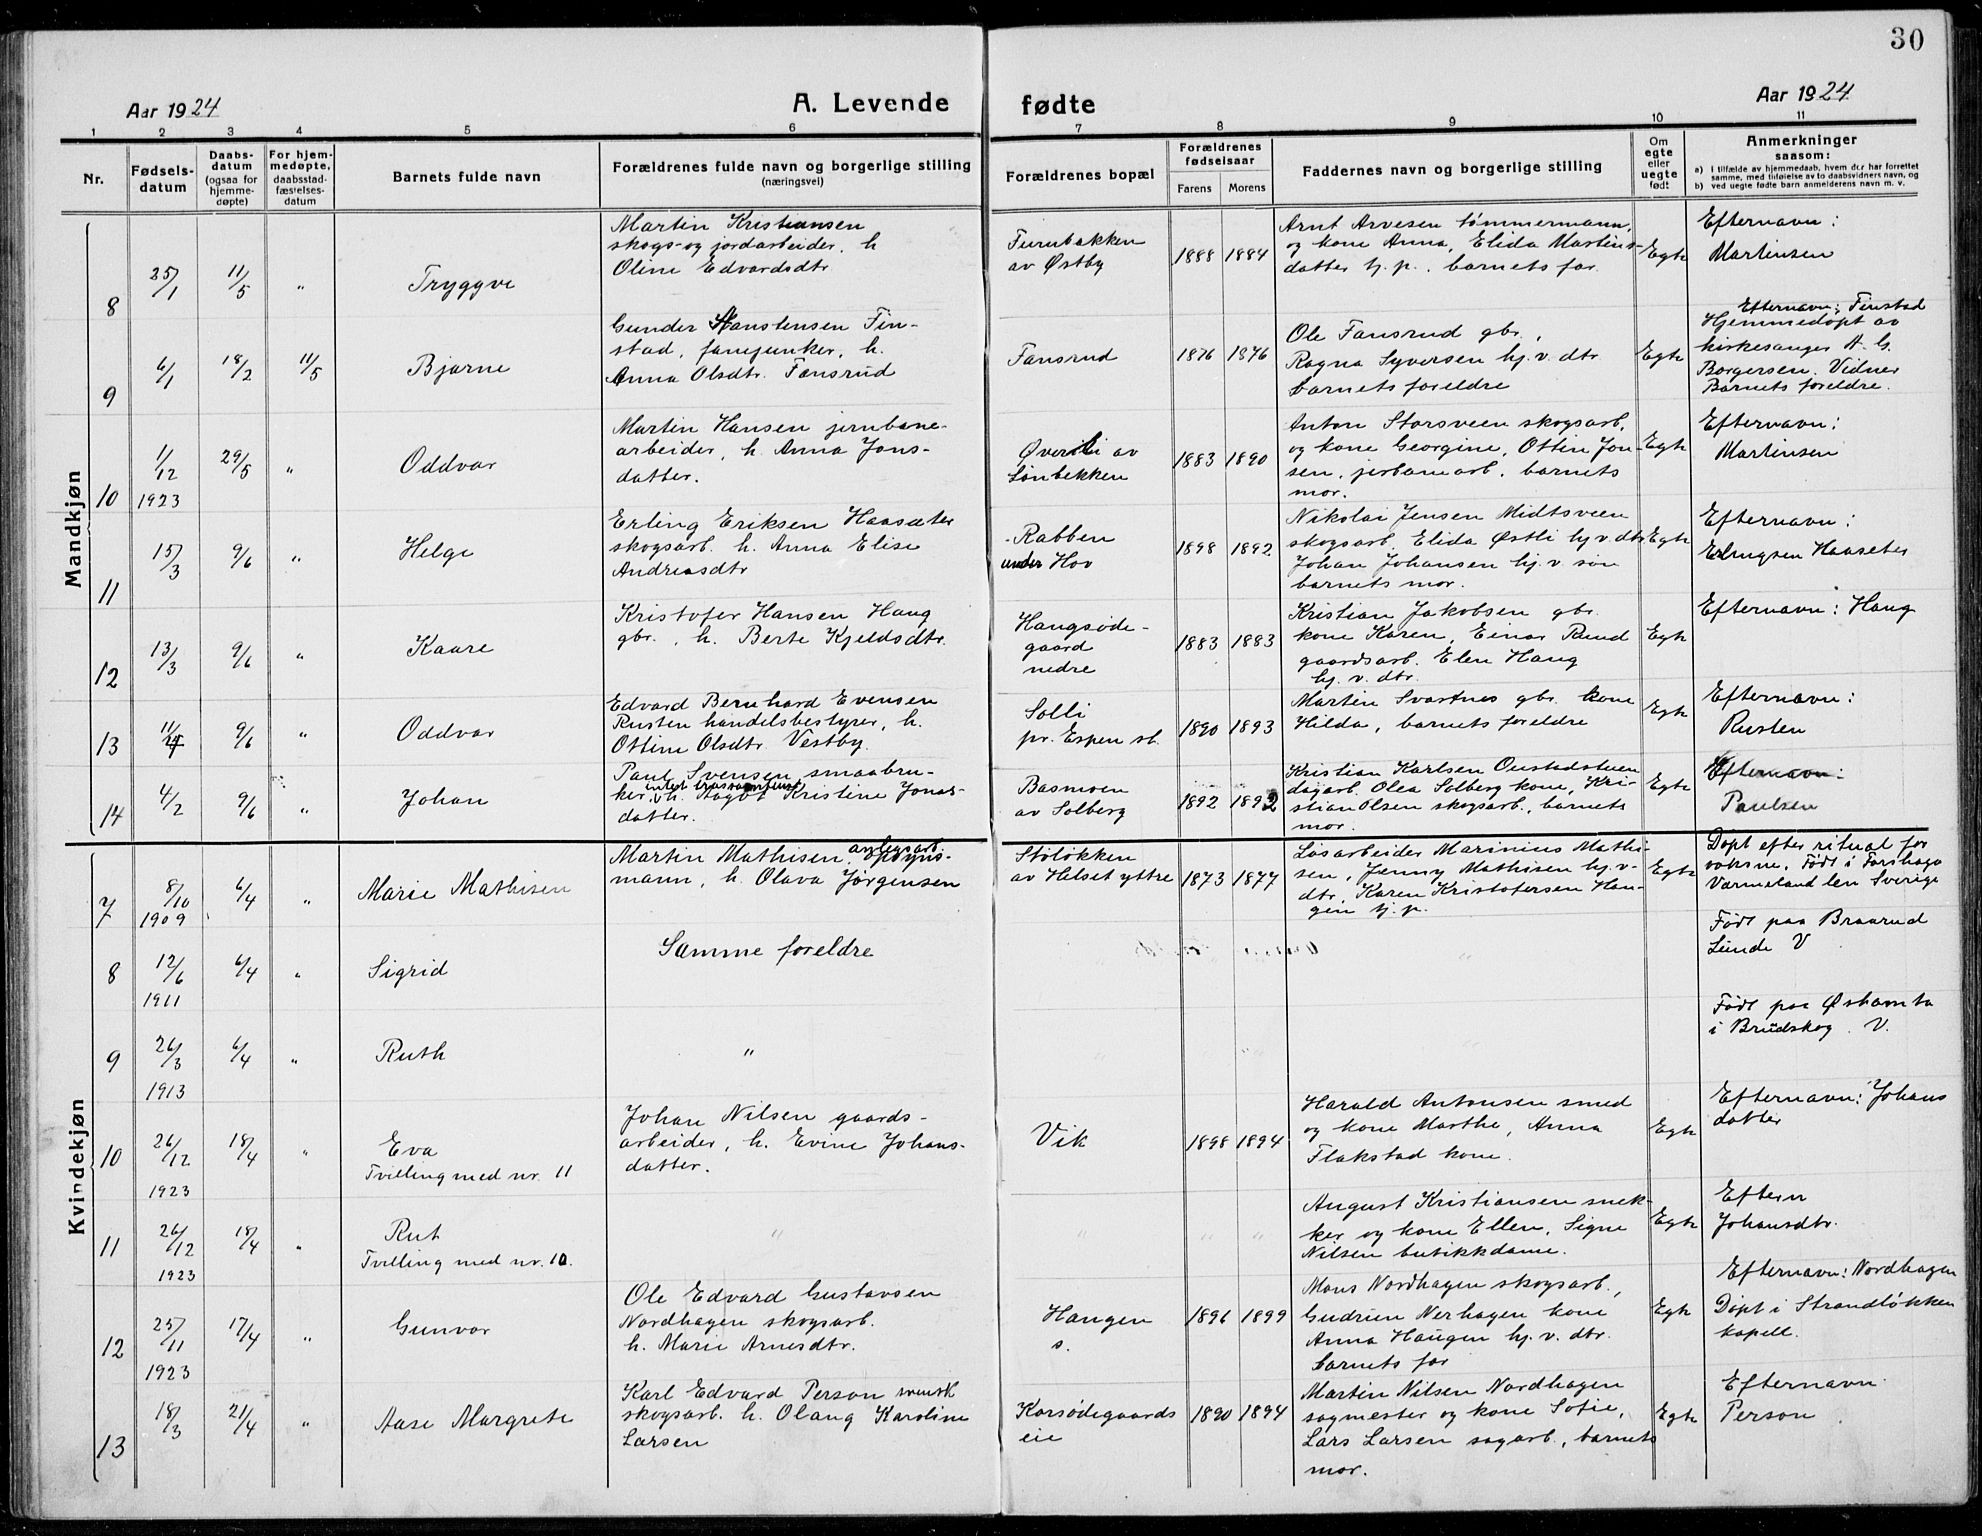 30
Aar 1924
A. Levende fødte
Aar 1924
1 2 3 4 5 6 7 8 9 10 11
Nr.
Fødsels-
datum
Daabs-
datum
(ogsaa for
hjemme-
døpte)
For hjem-
medøpte,
daabsstad-
fæstelses-
datum
Barnets fulde navn
Forældrenes fulde navn og borgerlige stilling
(næringsvei)
Forældrenes bopæl
Forældrenes
fødselsaar
Farens Morens
Faddernes navn og borgerlige stilling
Om
egte
eller
uegte
født
Anmerkninger
saasom:
a) I tilfælde av hjemmedaab, hvem der har forrettet
samme, med tilføielse av to daabsvidners navn, og
b) ved uegte fødte barn anmelderens navn m. v.
Mandkjøn
8
25/1
11/5
"
Tryggve
Martin Kristiansen
skogs- og jordarbeider, h
Oline Edvardsdtr
Furubakken
av Østby
1888 1884
Arnt Arvesen tømmermann,
og kone Anna, Elida Martins-
datter hj. p., barnets far.
Egte
Efternavn:
Martinsen
9
6/1
18/2
11/5
Bjarne
Gunder Hanstensen Fin-
stad, fanejunker, h.
Anna Olsdtr. Fansrud
Fansrud
1876 1876
Ole Fansrud gbr.,
Ragna Syversen hj. v. dtr
barnets foreldre
Egte
Efternavn: Finstad
Hjemmedøpt av
kirkesanger A. G.
Borgersen. Vidner
Barnets foreldre.
10
1/12
1923
29/5
"
Oddvar
Martin Hansen jernbane-
arbeider, h. Anna Jons-
datter.
Øverli av
Lønbekken
1883 1890
Anton Storsveen skogsarb.
og kone Georgine, Ottin Jon-
sen, jerbanearb., barnets
mor.
Egte
Efternavn:
Martinsen
11
15/3
9/6
"
Helge
Erling Eriksen Haasæter
skogsarb. h. Anna Elise
Andreasdtr
Rabben
under Hov
1898 1892
Nikolai Jensen Midtsveen
skogsarb. Elida Østli hj. v. dtr
Johan Johansen hj. v. søn
barnets mor.
Egte
Efternavn:
Erlingsen Haaseter
12
13/3
9/6
"
Kaare
Kristofer Hansen Haug
gbr., h. Berte Kjeldsdtr.
Haugsøde-
gaard
nedre
1883 1883
Kristian Jakobsen gbr.
kone Karen, Einar Ruud
gaardsarb. Elen Haug
hj. v. dtr.
Egte
Efternavn: Haug
13
11/
9/6
"
Oddvar
Edvard Bernhard Evensen
Rusten handelsbestyrer, h.
Ottine Olsdtr. Vestby
Solli
pr. Espen st.
1890 1893
Martin Svartnes gbr. kone
Hilda, barnets foreldre
Egte
Efternavn:
Rusten
14
4/2
9/6
"
Johan
Paul Svensen smaabru-
ker, h. Aagot Kristine Jonas-
datter.
Basmoen
av Solberg
1892 1892
Kristian Karlsen Oustadstuen
dagarb. Olea Solberg kone, Kri-
stian Olsen skogsarb., barnets
mor.
Egte
Efternavn:
Paulsen
Kvindekjøn
7
8/10
1909
6/4
"
Marie Mathisen
Martin Mathisen, anlegsarb.
mann, h. Olava Jørgensen
Støløkken
av Helset yttre
1873 1877
Løsarbeider Marinius Mathi-
sen, Jenny Mathisen hj. v.
dtr, Karen Kristofersen Hau-
gen hj. p.
Egte
Døpt efter ritual for
voksne. Født i Forshaga
Værmeland len Sverige
8
12/6
1911
6/4
"
Sigrid
Samme foreldre
"
Født paa Braarud
Sunde V
9
26/3
1913
6/4
"
Ruth
"
"
"
"
Født paa Øshamta
i Brudskog. V.
10
26/12
1923
18/4
"
Eva
Tvilling med nr. 11
Johan Nilsen gaards-
arbeider, h. Evine Johans-
datter.
Vik
1898 1894
Harald Antonsen smed
og kone Marthe, Anna
Flakstad kone.
Egte
Efternavn: Johans
datter
11
26/12
1923
18/4
"
Rut
Tvilling med nr. 10.
"
"
" "
August Kristiansen snek-
ker og kone Ellen, Signe
Nilsen butikkdame.
Egte
Eftern
Johansdtr.
12
25/11
1923
17/4
"
Gunvor
Ole Edvard Gustavsen
Nordhagen skogsarb.
h. Marie Arnesdtr.
Haugen
s.
1896 1899
Mons Nordhagen skogsarb.,
Gudrun Nerhagen kone
Anna Haugen hj. v. dtr.
barnets far
Egte
Efternavn: Nordhagen
Døpt i Strandløkken
kapell.
13
18/3
21/4
"
Aase Margrete
Karl Edvard Person svensk
skogsarb. h. Olaug Karoline
Larsen
Korsødegaards
eie
1890 1894
Martin Nilsen Nordhagen
sagmester og kone Sofie,
Lars Larsen sagarb., barnets
mor.
Egte
Efternavn
Person